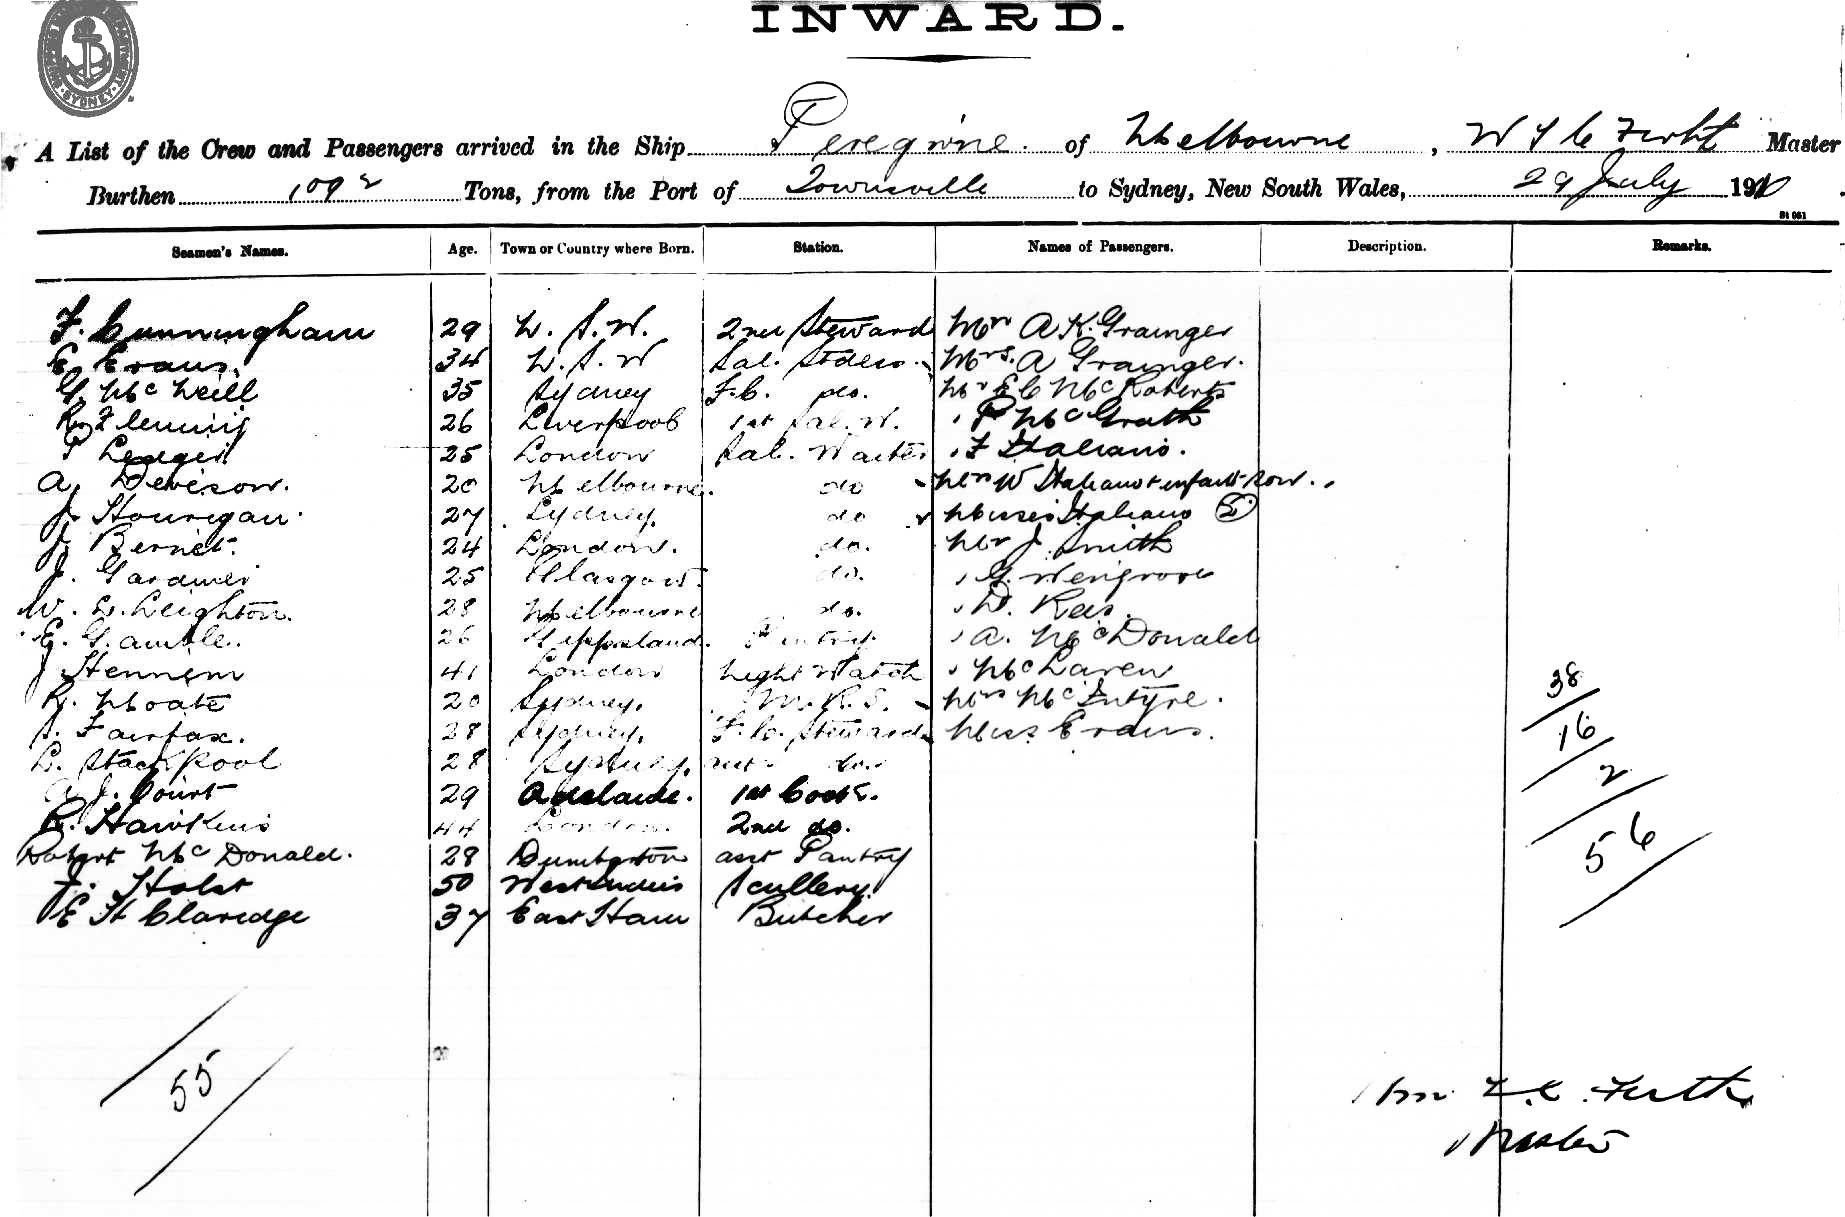 INWARD.
A List of the Crew and Passengers arrived in the Ship Peregrine. of Melbourne, Master
Burthen 1092 Tons, from the Port of Townsville to Sydney, New South Wales, 29 July 1910.
St 661
Seamen's Names. Age. Town or Country where Born. Station. Names of Passengers. Description. Remarks.
F. Cunningham 29 N. S. W. 2nd Steward Mr A K. Grainger
E Evans. 34 N. S. W Sal. Stdess. Mrs. A Grainger.
G. McNeill 35 Sydney F.C. do. Mr E C McRoberts
R. Fleming 26 Liverpool 1st Sal. W. " P McGrath
P Ledger 25 London Sal. Waiter " F Italiano.
A. Denison. 20 Melbourne. do Mrs W Italiano & infant son.
J. Hourigan. 27 Sydney. do Misses Italiano (2)
J. Bernet. 24 London. do. Mr J. Smith
J. Gardner 25 Glasgow. do. " G. Wengrove
W. L. Leighton. 28 Melbourne do. " D. Rees.
E. Gamble. 26 Gippsland. Pantry " A. McDonald
J Hennem 41 London Night Watch " McLaren
R. Moate 20 Sydney. M. R. S. Mrs McIntyre.
S. Fairfax. 28 Sydney. F.C. Steward Miss Evans.
L. Stackpool 28 Sydney. asst do.
A J. Court 29 Adelaide. 1st Cook.
R. Hawkins 44 London. 2nd do.
Robert McDonald. 28 Dumbarton asst Pantry
J. Holst 50 West Indies Scullery.
E H Claridge 37 East Ham Butcher
38
16
2
56
55
Wm F. C. Firth
Master